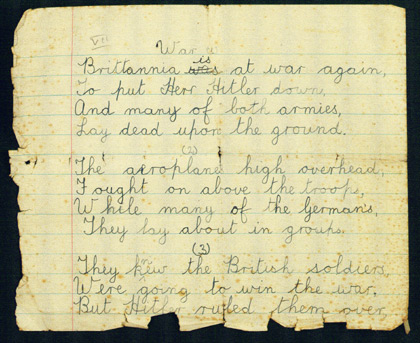 VII
War
Brittannia is at war again,
To put Herr Hitler down,
And many of both armies,
Lay dead upon the ground.
(2)
The aeroplanes high overhead,
Fought on above the troops,
While many of the Germans,
They lay about in groups.
(3)
They knew the British soldiers,
Were going to win the war,
But Hitler ruled them over,